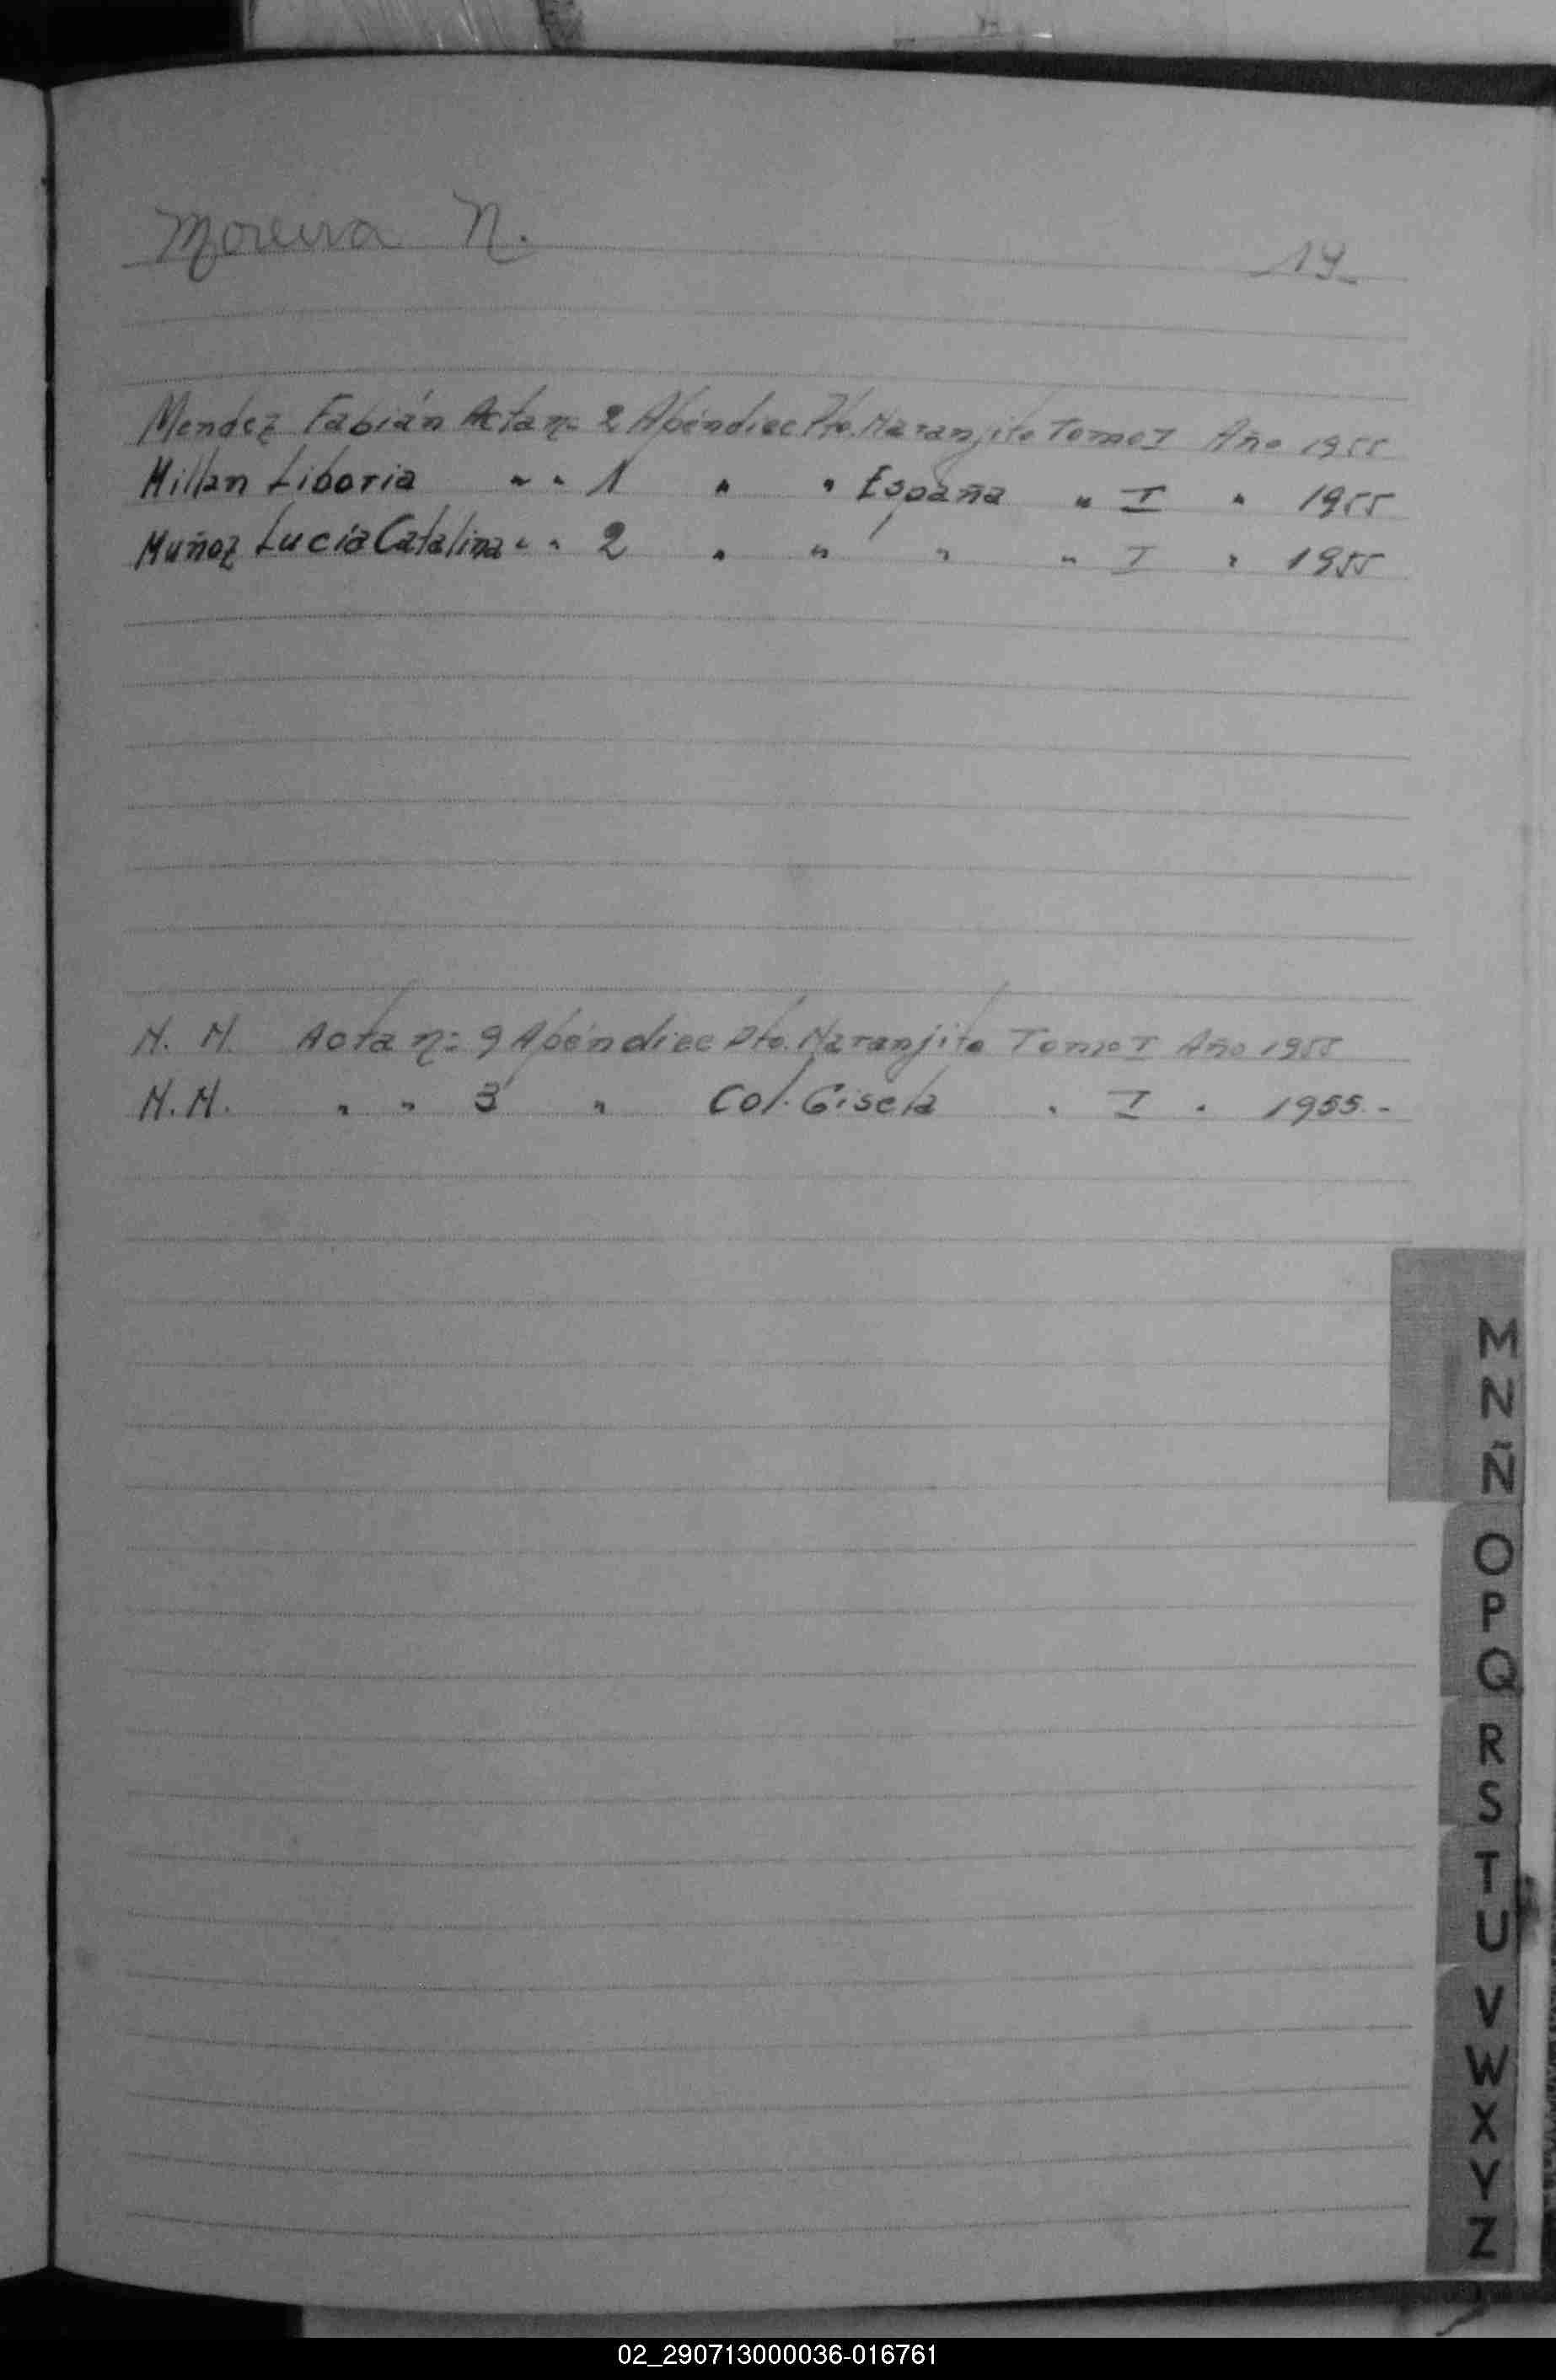 Moreira N. 14
Mendez Fabián Acta n: 2 Apéndice Pto. Naranjito Tomo I Año 1955
Millan Liboria " " 1 " " España " I " 1955
Muñoz Lucía Catalina " " 2 " " " " I " 1955
N. N. Acta n: 9 Apéndice Pto. Naranjito Tomo I Año 1955
N. N. " " 3 " Col. Gisela " I " 1955.-
M
N
Ñ
O
P
Q
R
S
T
U
V
W
X
Y
Z
02_290713000036-016761